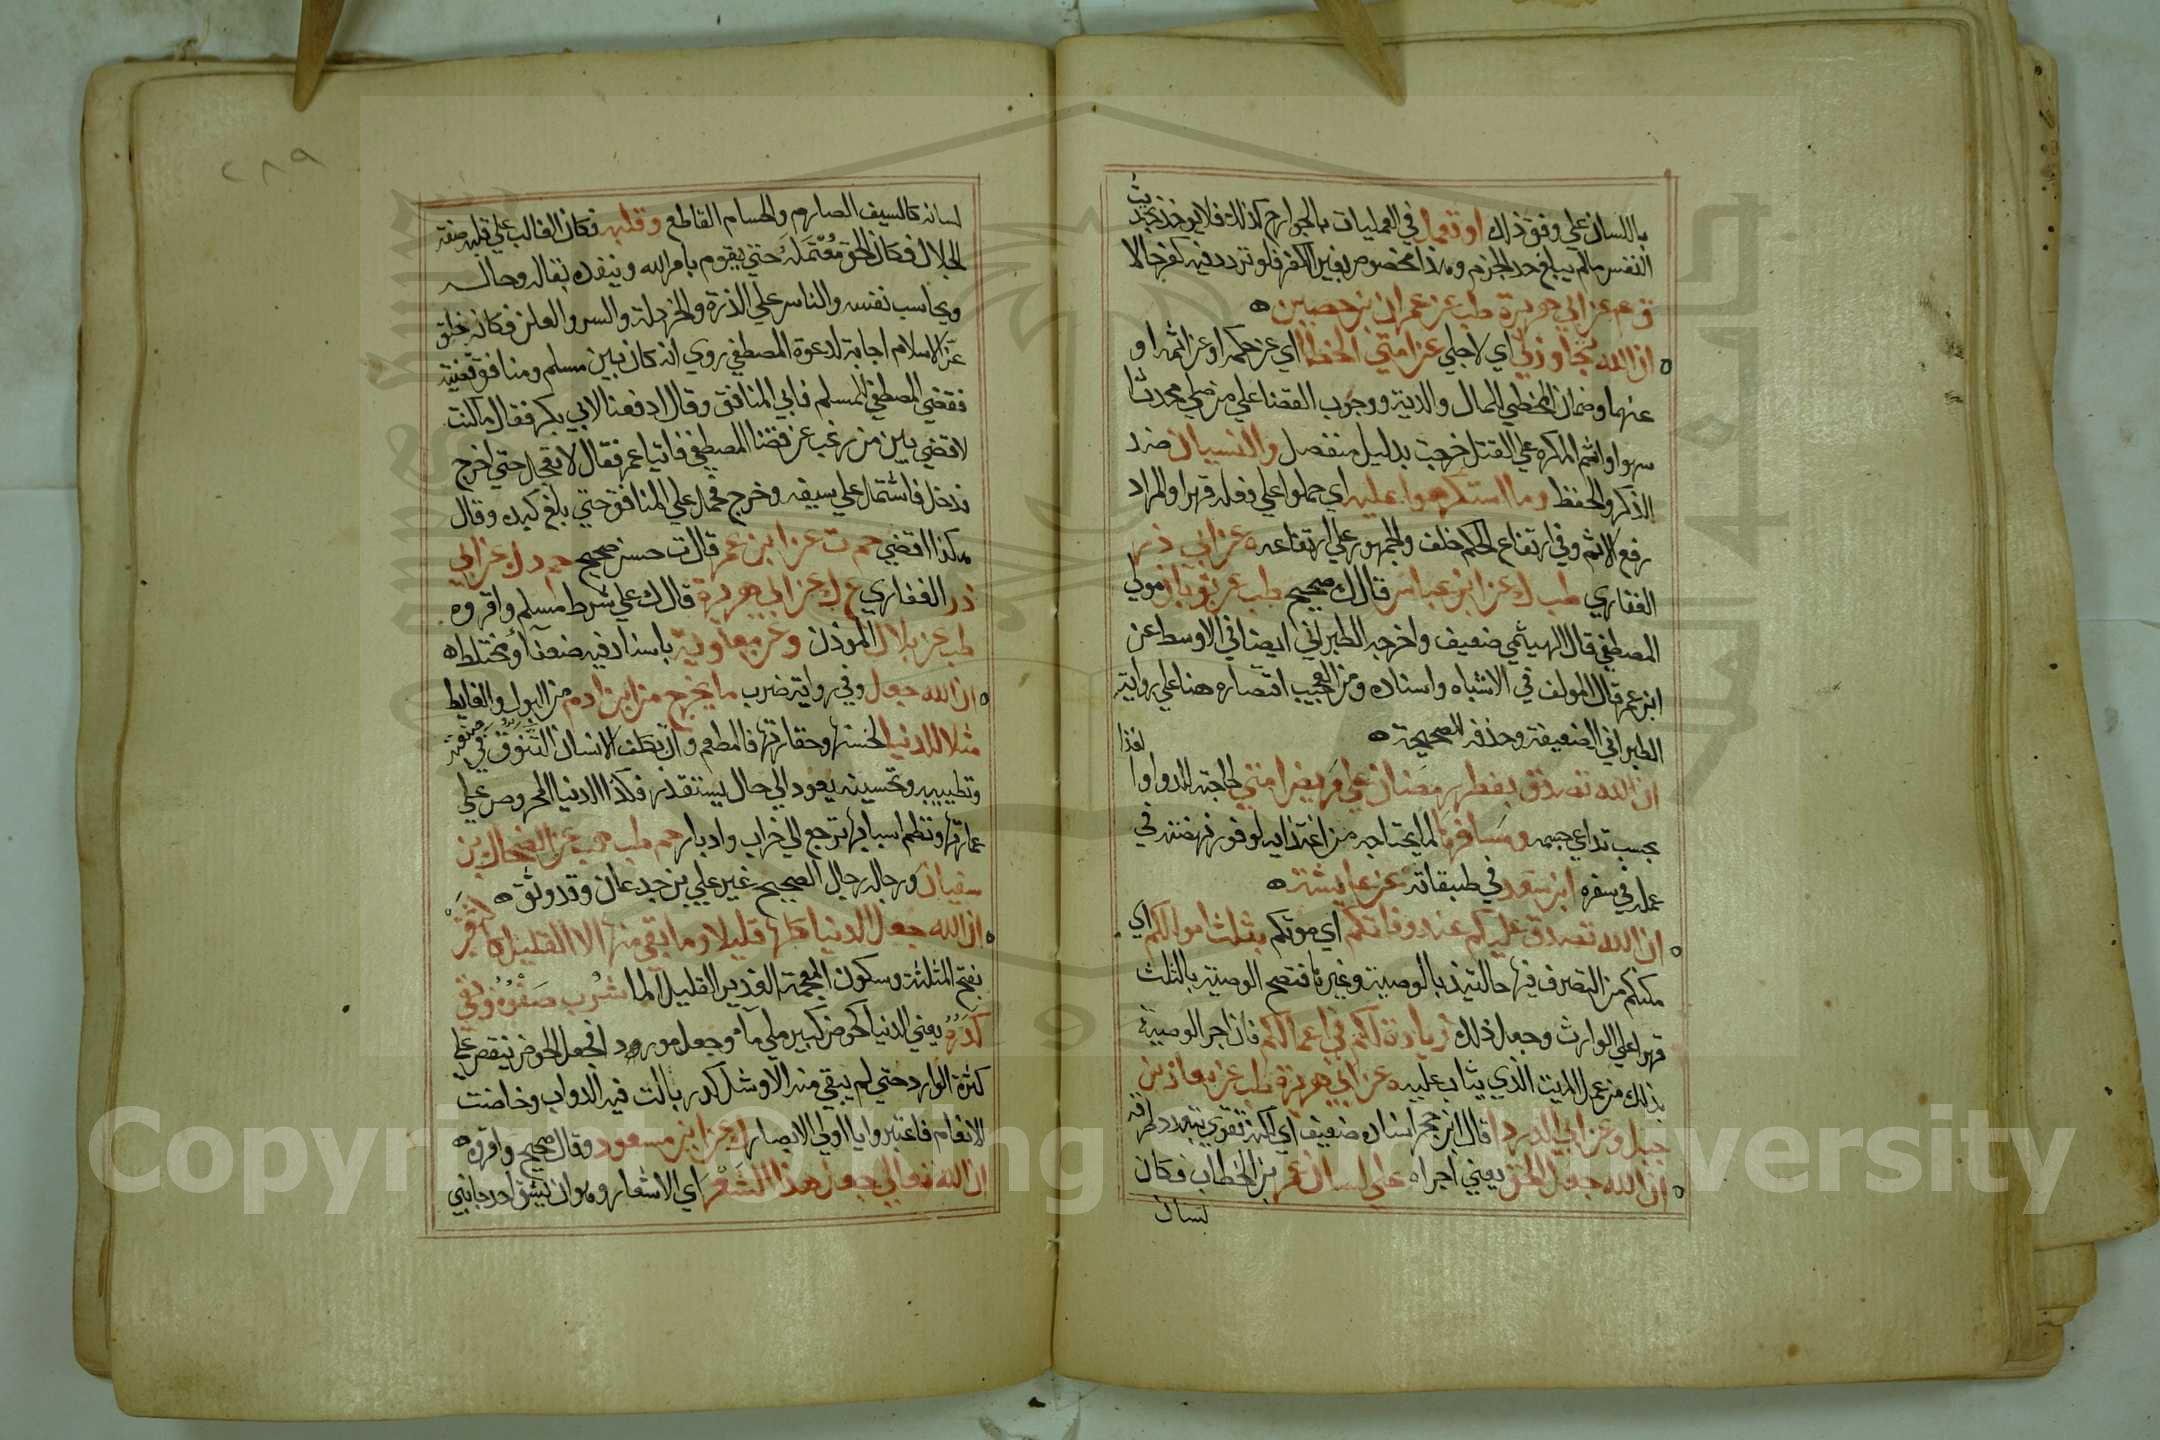 باللسان علي وفق ذلك او تعمل في العمليات بالجوارح كذلك فلا يواخذ بحديث
النفس مالم يبلغ حد الجزم وهذا مخصوص بغير الكفر فلو تردد فيه كفر حالا
ق عم عن ابي هريرة طب عن عمران بن حصين ه
ان الله تجاوز لي اي لاجلي عن امتي الخطا اي عن حكمه او عن اثمه او
عنهما وضمان المخطي المال والدية ووجوب القضا علي من صلي محدثا
سهوا واثم المكره علي القتل خرجت بدليل منفصل والنسيان ضد
الذكر والحفظ وما استكرهوا عليه اي حملوا علي فعله قهرا والمراد
رفع الاثم وفي ارتفاع الحكم خلف والجمهور علي ارتفاعه ه عن ابي ذر
الغفاري طب ك عن ابن عباس قال ك صحيح طب عن ثوبان مولي
المصطفي قال الهيثمي ضعيف واخرجه الطبراني ايضا في الاوسط عن
ابن عمر قال المولف في الاشباه واسناده ومن العجيب اقتصاره هنا علي رواية
الطبراني الضعيفة وحذفه للصحيحة ه
ان الله تصدق بفطر رمضان علي مريض امتي لحاجته للدوا والغذا
بحسب تداعي جسمه ومسافرها لما يحتاجه من اغتذايه لوفور نهضته في
عمله في سفره ابن سعد في طبقاته عن عايشة ه
ان الله تصدق عليكم عند وفاتكم اي موتكم بثلث اموالكم اي
مكنكم من التصرف فيها حالتيذ بالوصية وغيرها فتصح الوصية بالثلث
قهرا علي الوارث وجعل ذلك زيادة لكم في اعمالكم فان اجر الوصية
بذلك من عمل الميت الذي يثاب عليه ه عن ابي هريرة طب عن معاذ بن
جبل وعن ابي الدردا قال ابن حجر اسناده ضعيف اي لكنه تقوي بتعدد طرقه
ان الله جعل الحق يعني اجراه علي لسان عمر بن الخطاب فكان
لسانه
٢٨٩
لسانه كالسيف الصارم والحسام القاطع وقلبه فكان الغالب علي قلبه صفة
الجلال فكان الحق معتمله حتي يقوم بامر الله وينفذه بقاله وحاله
ويحاسب نفسه والناس علي الذرة والخردلة والسر والعلن فكانه خلق
عز الاسلام اجابة لدعوة المصطفي روي انه كان بين مسلم ومنافق قضية
فقضي المصطفي للمسلم فابي المنافق وقال ادفعنا لابي بكر فقال ما كنت
لاقضي بين من رغب عن قضا المصطفي فاتيا عمر فقال لا تعجل حتي اخرج
فدخل فاشتمل علي سيفه وخرج فحمل علي المنافق حتي بلغ كبده وقال
هكذا اقضي حم ت عن ابن عمر قال ت حسن صحيح حم د ك عن ابي
ذر الغفاري ع ك عن ابي هريرة قال ك علي شرط مسلم واقروه
طب عن بلال الموذن وعن معاوية باسناد فيه ضعفا ومختلط ه
ان الله جعل وفي رواية ضرب ما يخرج من ابن ادم من البول والغايط
مثلا للدنيا لخستها وحقارتها فالمطعم وان تكلف الانسان التنوق في صنعته
وتطييبه وتحسينه يعود الي حال يستقذر فكذا الدنيا المحروص علي
عمارتها ونظم اسبابها ترجع الي خراب وادبار حم طب هب عن الضحاك بن
سفيان ورجاله رجال الصحيح غير علي بن جدعان وقد وثق ه
ان الله جعل الدنيا كلها قليلا وما بقي منها الا القليل كالثغب
بفتح المثلثة وسكون المعجمة الغدير القليل الما شرب صفوه وبقي
كدره يعني الدنيا كحوض كبير ملي ما وجعل موردا فجعل الحوض ينقص علي
كثرة الوارد حتي لم يبقي منه الا وشل كدر بالت فيه الدواب وخاضت
الانعام فاعتبروا يا اولي الابصار ك عن ابن مسعود وقال صحيح واقروه ه
ان الله تعالي جعل هذا الشعر اي الاشعار وهو ان يشق احد جانبي
Copyright © King Saud University